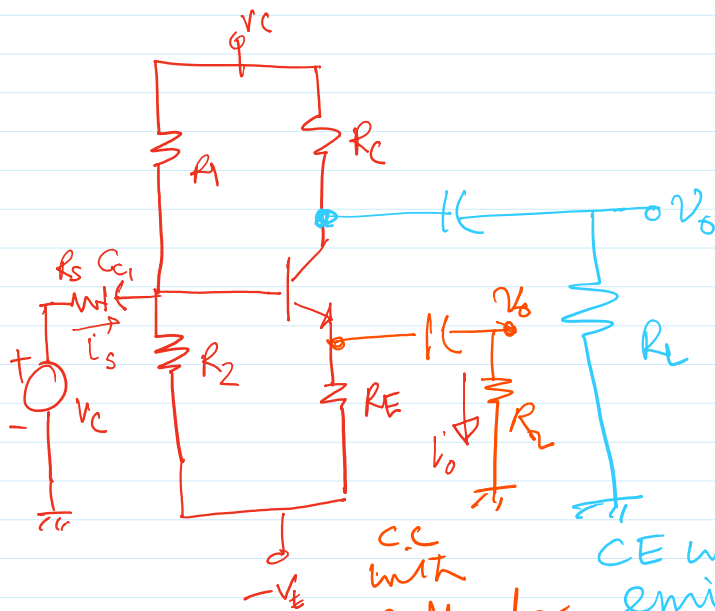 VC
R1
RC
Vo
Rs Cc1
is
R2
Vo
RL
+
-
VC
RE
io
RL
-VE
C.C
with
CE w
emi